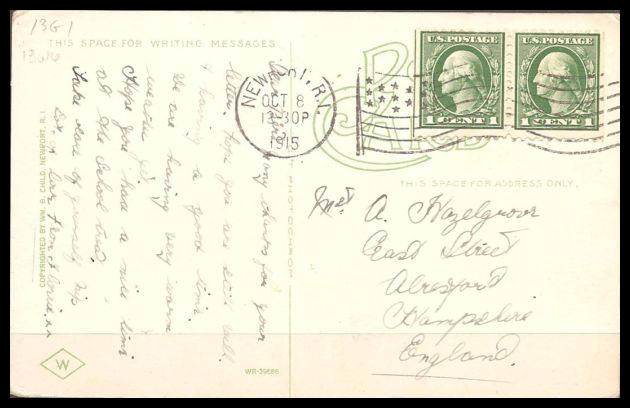 13G1
THIS SPACE FOR WRITING MESSAGES
many thanks for your
letter. hope you are still well.
& having a good time
We are having very warm
weather
Hope you had a nice time
at the School treat
Take care of yourself
love from
POST CARD
NEWPORT, R.I.
OCT 8
12-30P
1915
U.S. POSTAGE
1 CENT 1
U.S. POSTAGE
1 CENT 1
THIS SPACE FOR ADDRESS ONLY.
A. Hazelgrove
East Street
Alresford
Hampshire
England.
PHOTOCHROM
COPYRIGHTED BY WM. B. CHILD, NEWPORT, R.I.
W
WR-39686